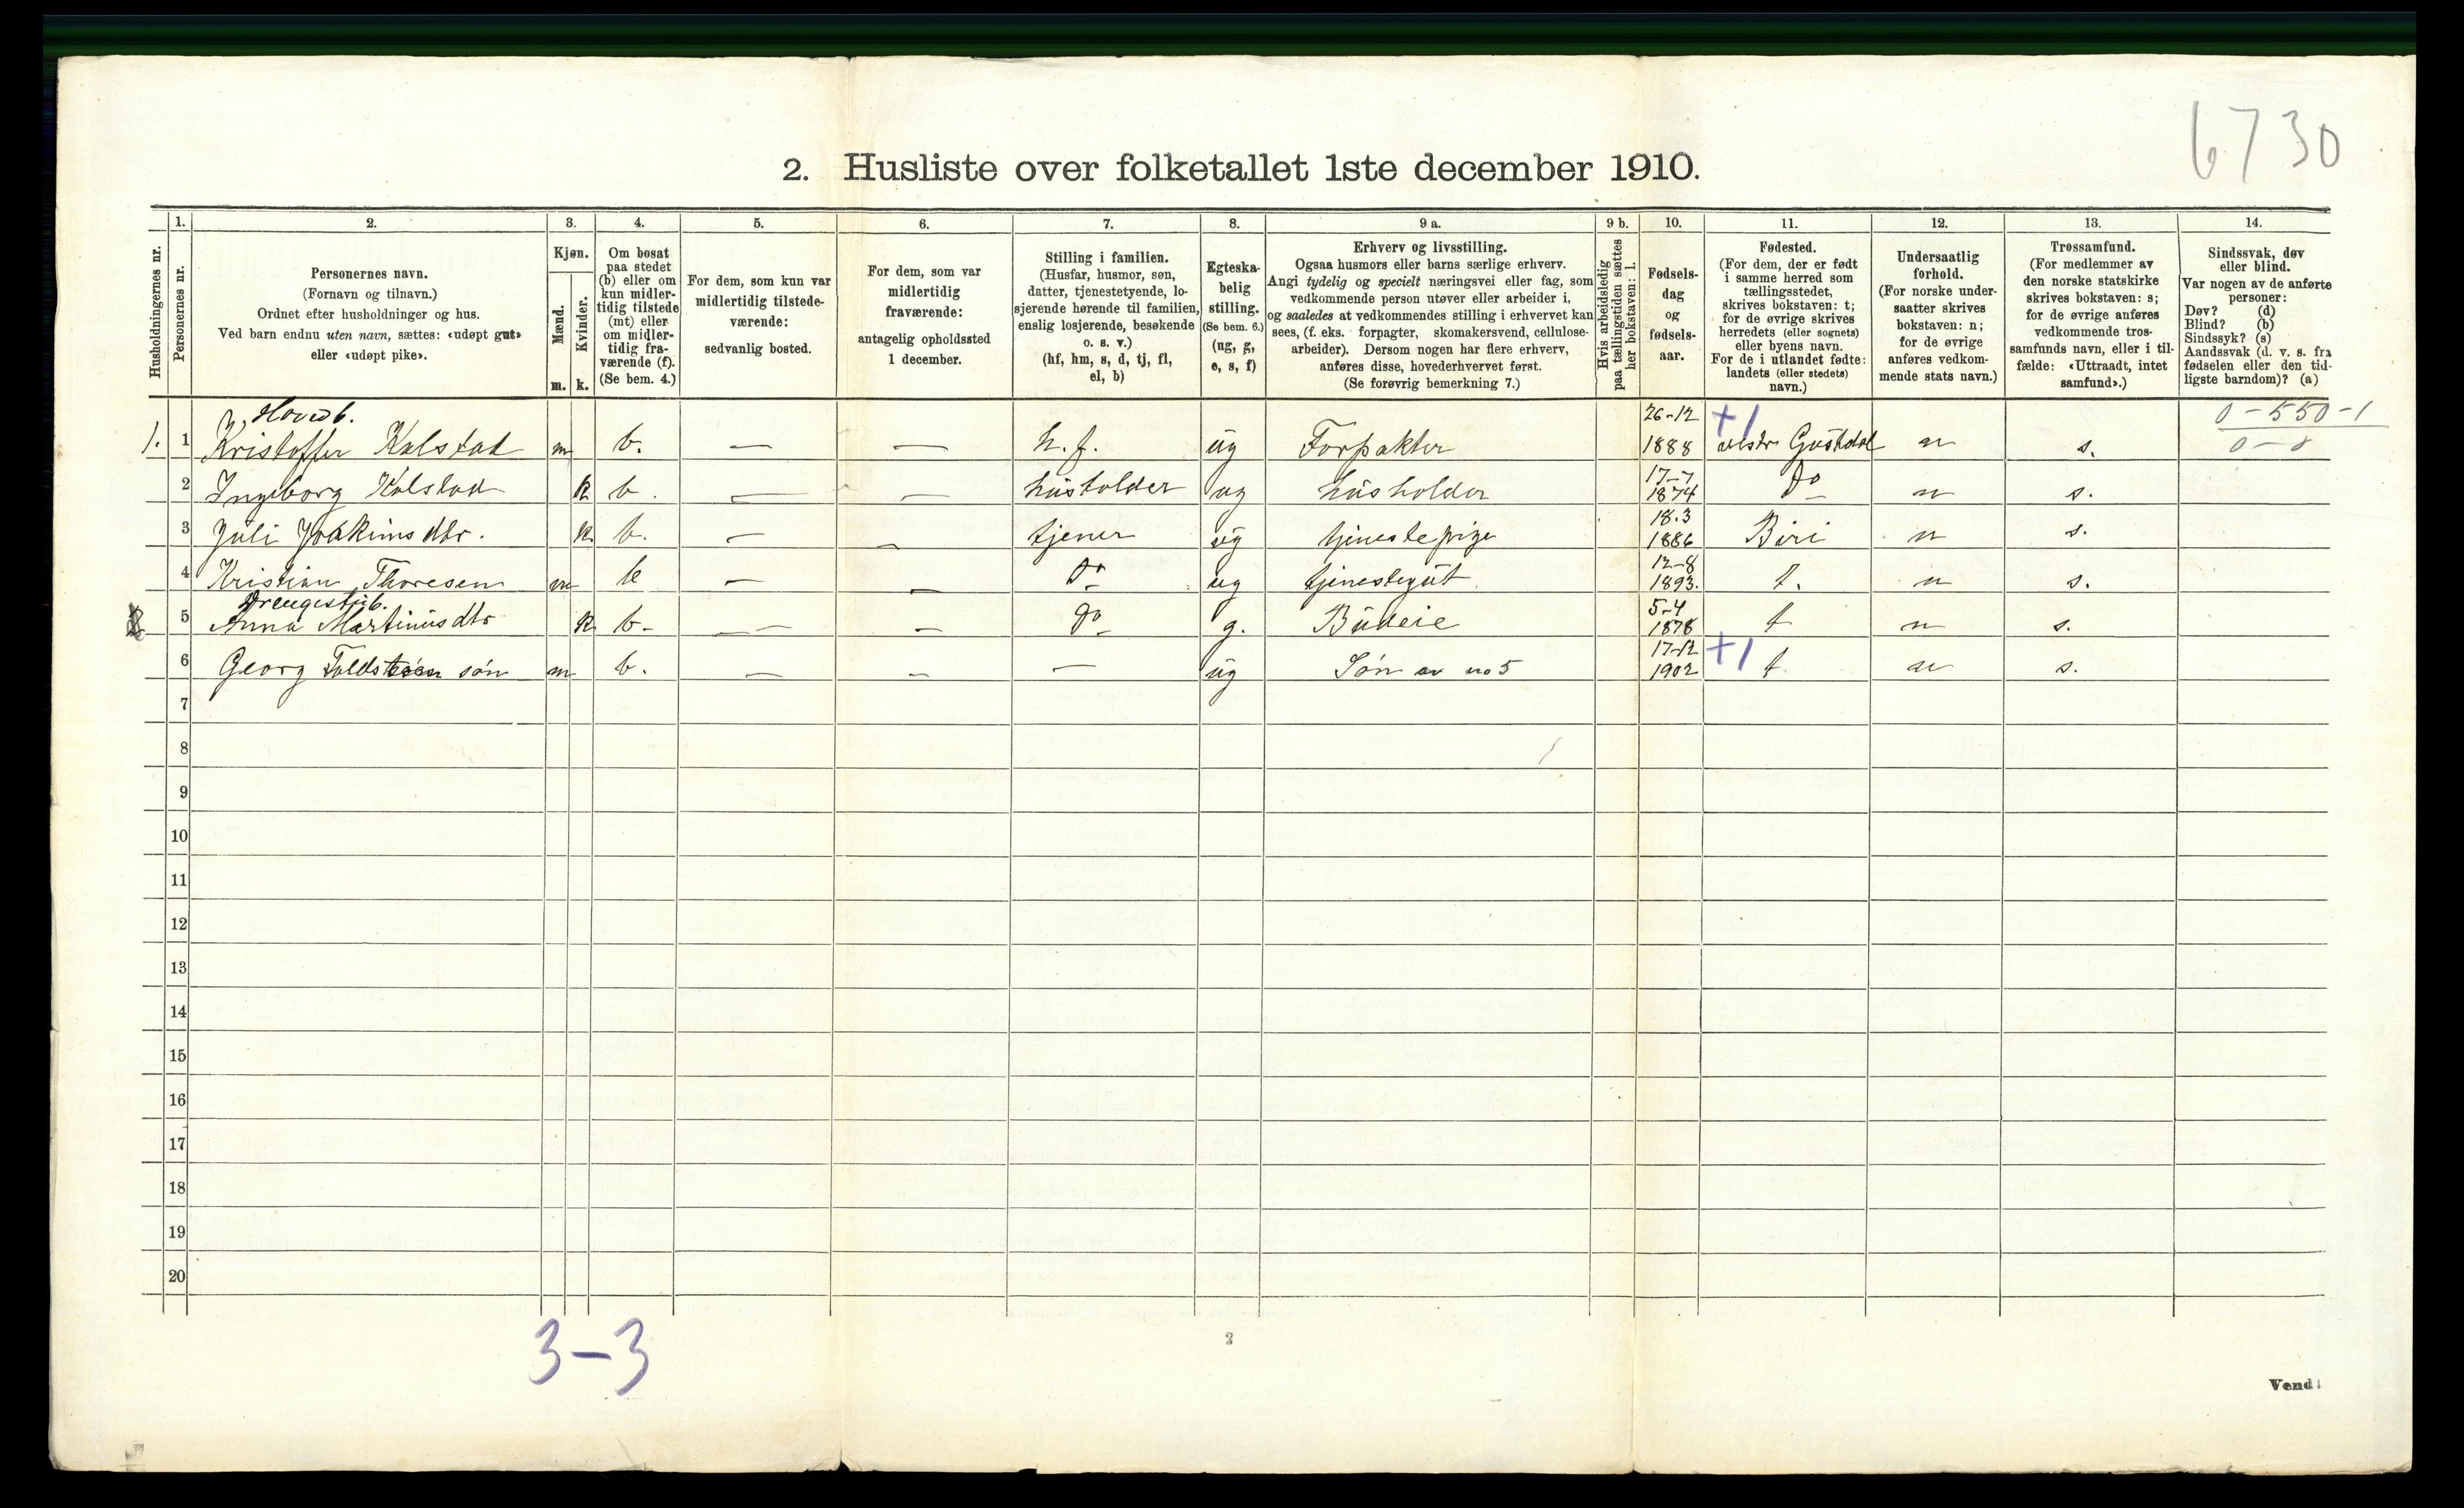 6730
2. Husliste over folketallet 1ste december 1910.
Husholdningernes nr.
1.
Personernes nr.
2.
Personernes navn.
(Fornavn og tilnavn.)
Ordnet efter husholdninger og hus.
Ved barn endnu uten navn, sættes: «udøpt gut»
eller «udøpt pike».
3.
Kjøn.
Mænd.
Kvinder.
m. k.
4.
Om bosat
paa stedet
(b) eller om
kun midler-
tidig tilstede
(mt) eller
om midler-
tidig fra-
værende (f).
(Se bem. 4.)
5.
For dem, som kun var
midlertidig tilstede-
værende:
sedvanlig bosted.
6.
For dem, som var
midlertidig
fraværende:
antagelig opholdssted
1 december.
7.
Stilling i familien.
(Husfar, husmor, søn,
datter, tjenestetyende, lo-
sjerende hørende til familien,
enslig losjerende, besøkende
o. s. v.)
(hf, hm, s, d, tj, fl,
el, b)
8.
Egteska-
belig
stilling.
(Se bem. 6.)
(ug, g,
e, s, f)
9 a.
Erhverv og livsstilling.
Ogsaa husmors eller barns særlige erhverv.
Angi tydelig og specielt næringsvei eller fag, som
vedkommende person utøver eller arbeider i,
og saaledes at vedkommendes stilling i erhvervet kan
sees, (f. eks. forpagter, skomakersvend, cellulose-
arbeider). Dersom nogen har flere erhverv,
anføres disse, hovederhvervet først.
(Se forøvrig bemerkning 7.)
9 b.
Hvis arbeidsledig
paa tællingstiden sættes
her bokstaven: l.
10.
Fødsels-
dag
og
fødsels-
aar.
11.
Fødested.
(For dem, der er født
i samme herred som
tællingsstedet,
skrives bokstaven: t;
for de øvrige skrives
herredets (eller sognets)
eller byens navn.
For de i utlandet fødte:
landets (eller stedets)
navn.)
12.
Undersaatlig
forhold.
(For norske under-
saatter skrives
bokstaven: n;
for de øvrige
anføres vedkom-
mende stats navn.)
13.
Trossamfund.
(For medlemmer av
den norske statskirke
skrives bokstaven: s;
for de øvrige anføres
vedkommende tros-
samfunds navn, eller i til-
fælde: «Uttraadt, intet
samfund».)
14.
Sindssvak, døv
eller blind.
Var nogen av de anførte
personer:
Døv? (d)
Blind? (b)
Sindssyk? (s)
Aandssvak (d. v. s. fra
fødselen eller den tid-
ligste barndom)? (a)
Hovedb. 26-12 +1 0-550-1
1. 1 Kristoffer Kolstad m b. — — h.f. ug Forpakter 1888 vestr Gusdal n s. 0-0
2 Ingeborg Kolstad k b. — — husholder ug husholder 17-7 1874 Do n s.
3 Juli Joakimsdtr. k b. — — tjener ug tjenestepige 18.3 1886 Biri n s.
4 Kristian Thoresen m b — — Do ug tjenestegut 12-8 1893. t. n s.
Drengestub.
5 Anna Martinusdtr k b. — — Do g. Budeie 5-4 1878 t n s.
6 Georg søn m b. — — — ug Søn av no 5 17-12 1902 +1 t n s.
7
8
9
10
11
12
13
14
15
16
17
18
19
20
3-3
2
Vend!